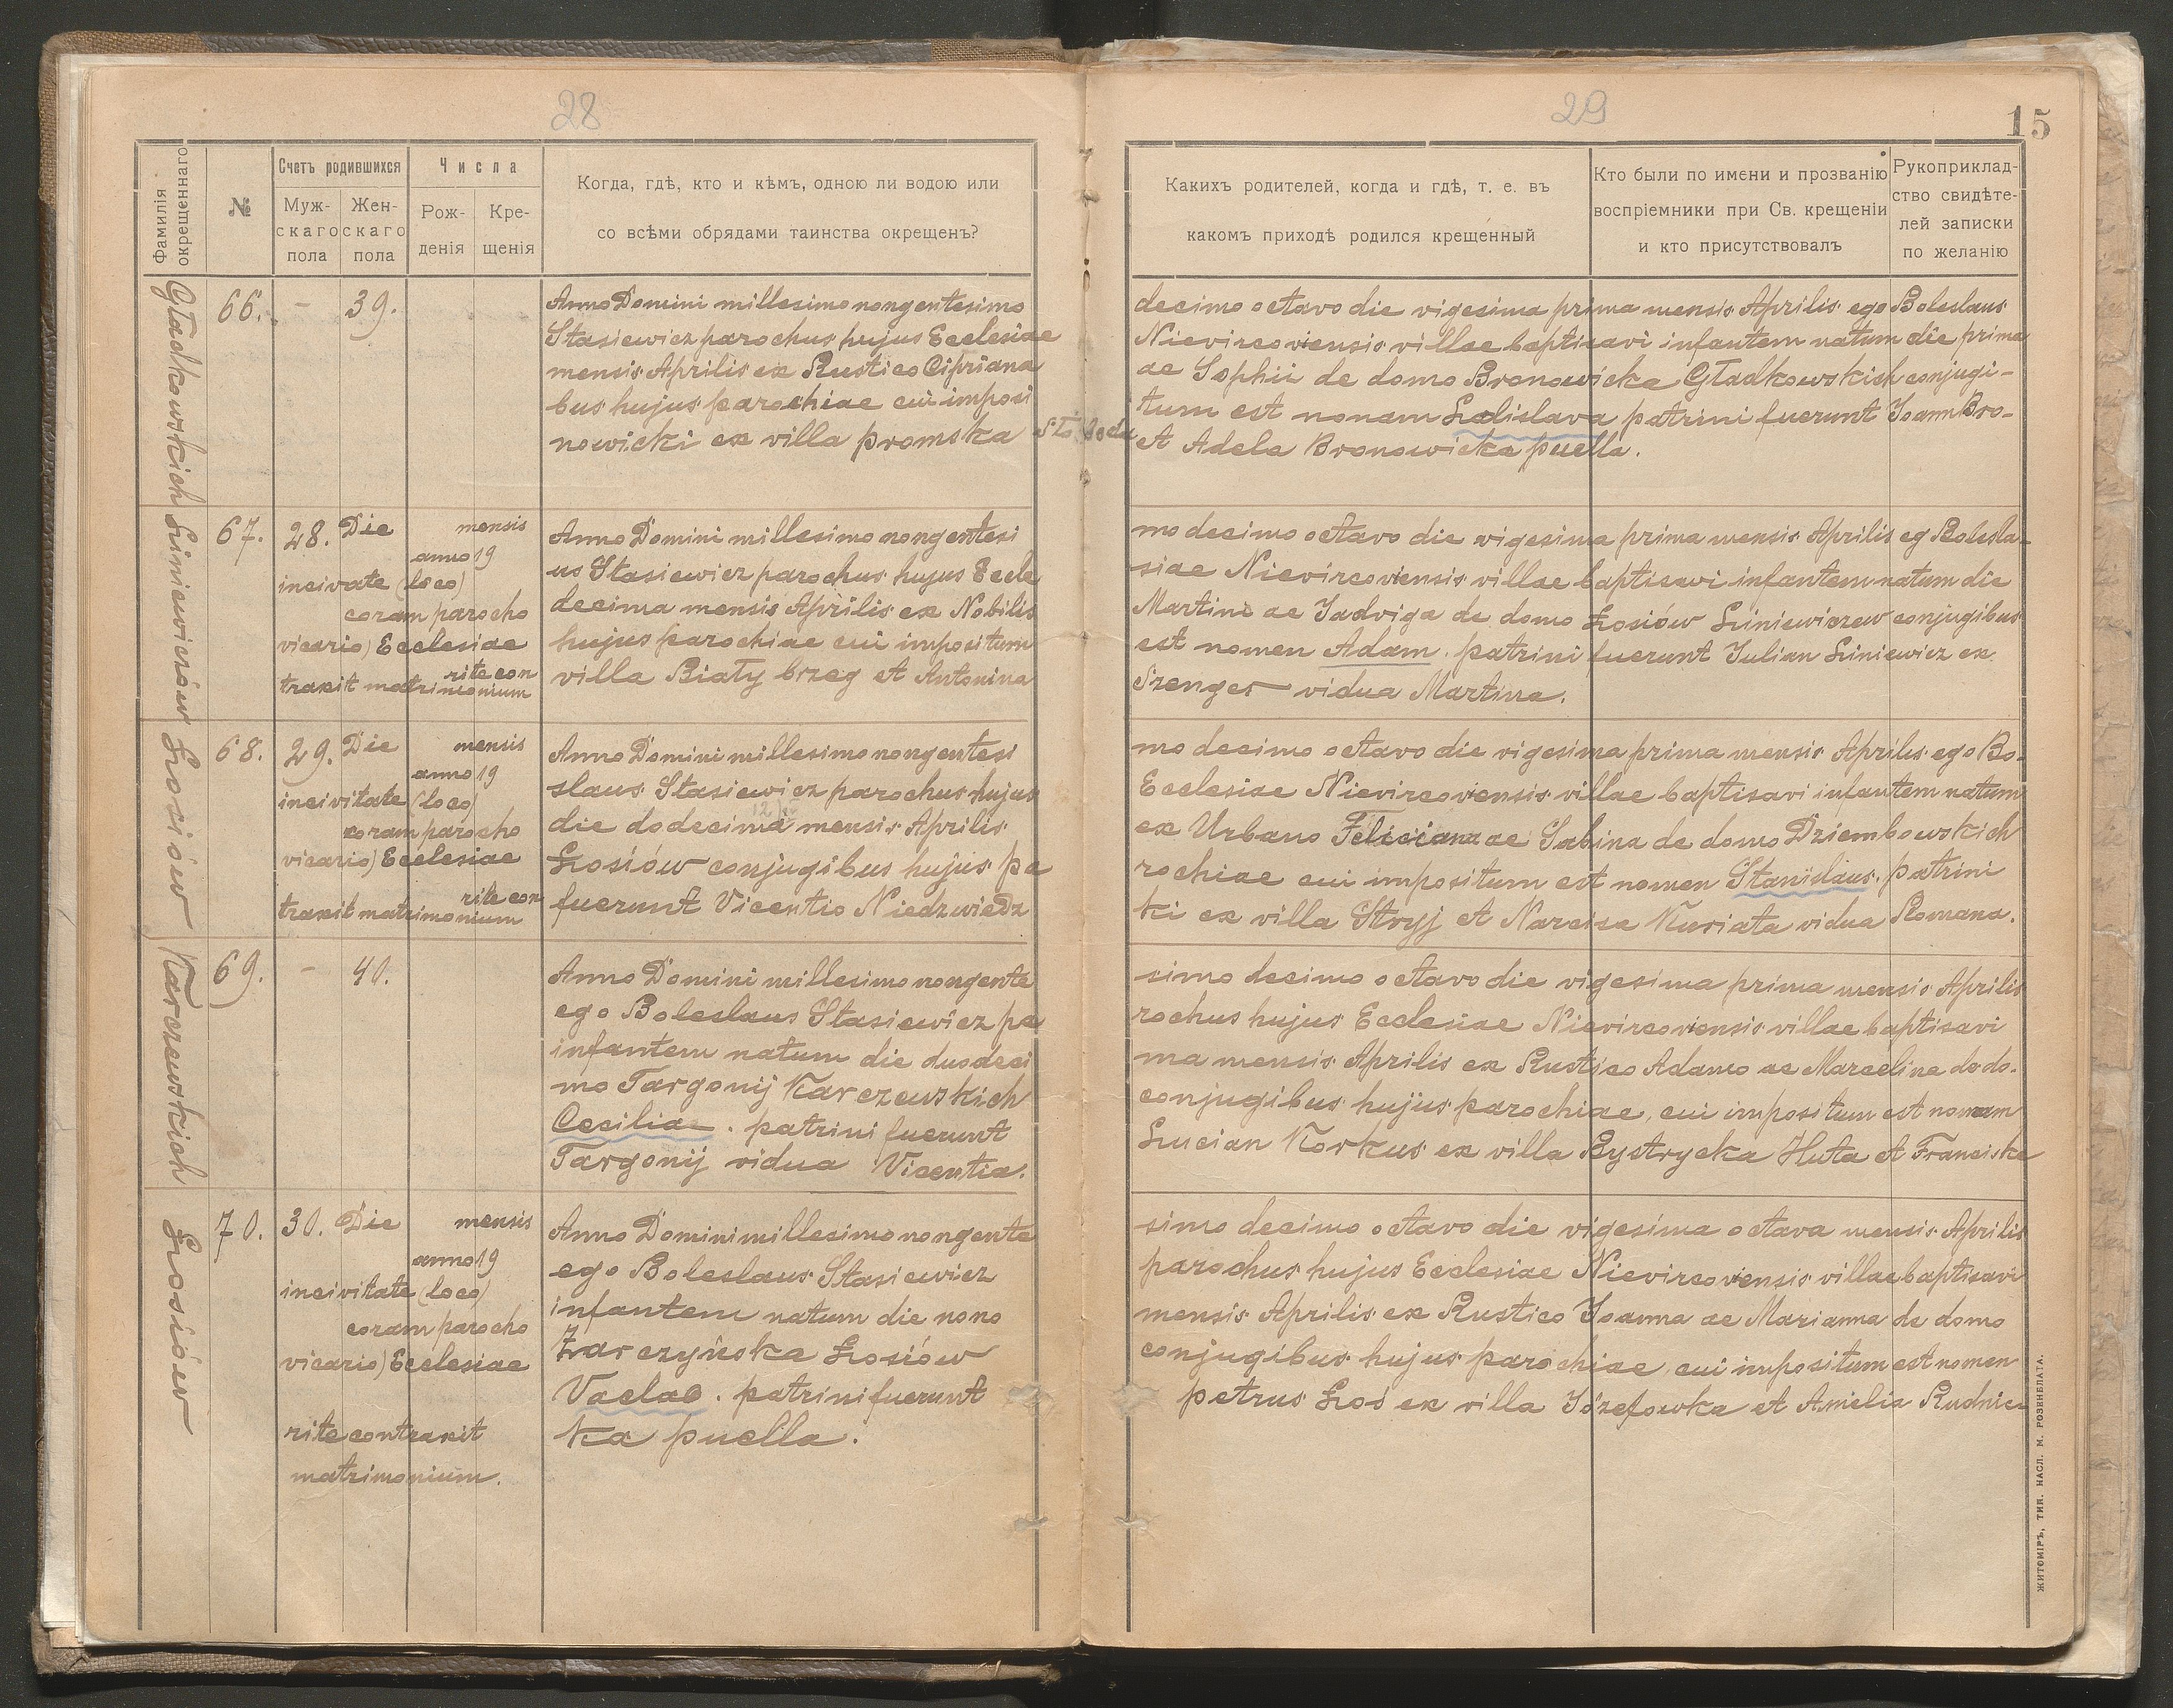 28
Фамилія
окрещеннаго
№
Счетъ родившихся
Муж-
скаго
пола
Жен-
скаго
пола
Числа
Рож-
денія
Кре-
щенія
Когда, гдѣ, кто и кѣмъ, одною ли водою или
со всѣми обрядами таинства окрещенъ?
Gładkowskich
66. - 39.
Anno Domini millesimo nongentesimo
Stasiewicz parochus hujus Ecclesiae
mensis Aprilis ex Rustico Cipriana
bus hujus parochiae cui imposi
nowicki ex villa promska
Liniewiczów
67. 28. Die mensis
anno 19
incivate (loco)
coram parocho
vicario) Ecclesiae
rite con
traxit matrimonium
Anno Domini millesimo nongentesi
us Stasiewicz parochus hujus Eccle
decima mensis Aprilis ex Nobilis
hujus parochiae cui impositum
villa Biały brzeg et Antonina
Łosiów
68. 29. Die mensis
anno 19
incivitate (loco)
coram parocho
vicario) Ecclesiae
rite con
traxit matrimonium
Anno Domini millesimo nongentesi
slaus Stasiewicz parochus hujus
die dodecima mensis Aprilis
Łosiów conjugibus hujus pa
fuerunt Vicentio Niedzwiedz
Karczewskich
69. - 40.
Anno Domini millesimo nongente
ego Boleslaus Stasiewicz pa
infantem natum die duodeci
mo Targonij Karczewskich
Cecilia. patrini fuerunt
Targonij vidua Vicentia.
Łosiów
70. 30. Die mensis
anno 19
incivitate (loco)
coram parocho
vicario) Ecclesiae
rite contraxit
matrimonium.
Anno Domini millesimo nongente
ego Boleslaus Stasiewicz
infantem natum die nono
Zarczyńska Łosiów
Vaclav. patrini fuerunt
ka puella.
29
15
Какихъ родителей, когда и гдѣ, т. е. въ
какомъ приходѣ родился крещенный
Кто были по имени и прозванію
воспріемники при Св. крещеніи
и кто присутствовалъ
Рукоприклад-
ство свидѣте-
лей записки
по желанію
decimo octavo die vigesima prima mensis Aprilis ego Boleslaus
Nievircoviensis villae baptisavi infantem natum die prima
ac Sophii de domo Bronowicka Gładkowskich conjugi-
tum est nonam Ladislava patrini fuerunt Joann Bro-
et Adela Bronowicka puella.
mo decimo octavo die vigesima prima mensis Aprilis eg Bolesla-
siae Nievircoviensis villae baptisavi infantem natum die
Martino ac Jadviga de domo Łosiów Liniewiczew conjugibus
est nomen Adam. patrini fuerunt Julian Liniewicz ex
Szenger vidua Martina.
mo decimo octavo die vigesima prima mensis Aprilis ego Bo-
Ecclesiae Nievircoviensis villae baptisavi infantem natum
ex Urbano Feliciana ac Sabina de domo Dziembowskich
rochiae cui impositum est nomen Stanislaus. patrini
ki ex villa Stryj et Narcisa Kuriata vidua Romana.
simo decimo octavo die vigesima prima mensis Aprilis
rochus hujus Ecclesiae Nievircoviensis villae baptisavi
ma mensis Aprilis ex Rustico Adamo ac Marcelina de do-
conjugibus hujus parochiae, cui impositum est nomam
Lucian Korkus ex villa Bystrycka Huta et Franciska
simo decimo octavo die vigesima octava mensis Aprilis
parochus hujus Ecclesiae Nievircoviensis villae baptisavi
mensis Aprilis ex Rustico Joanna ac Marianna de domo
conjugibus hujus parochiae, cui impositum est nomen
petrus Łoś ex villa Józefowka et Amelia Rudnic-
ЖИТОМІРЪ, ТИП. НАСЛ. М. РОЗЕНБЛАТА.